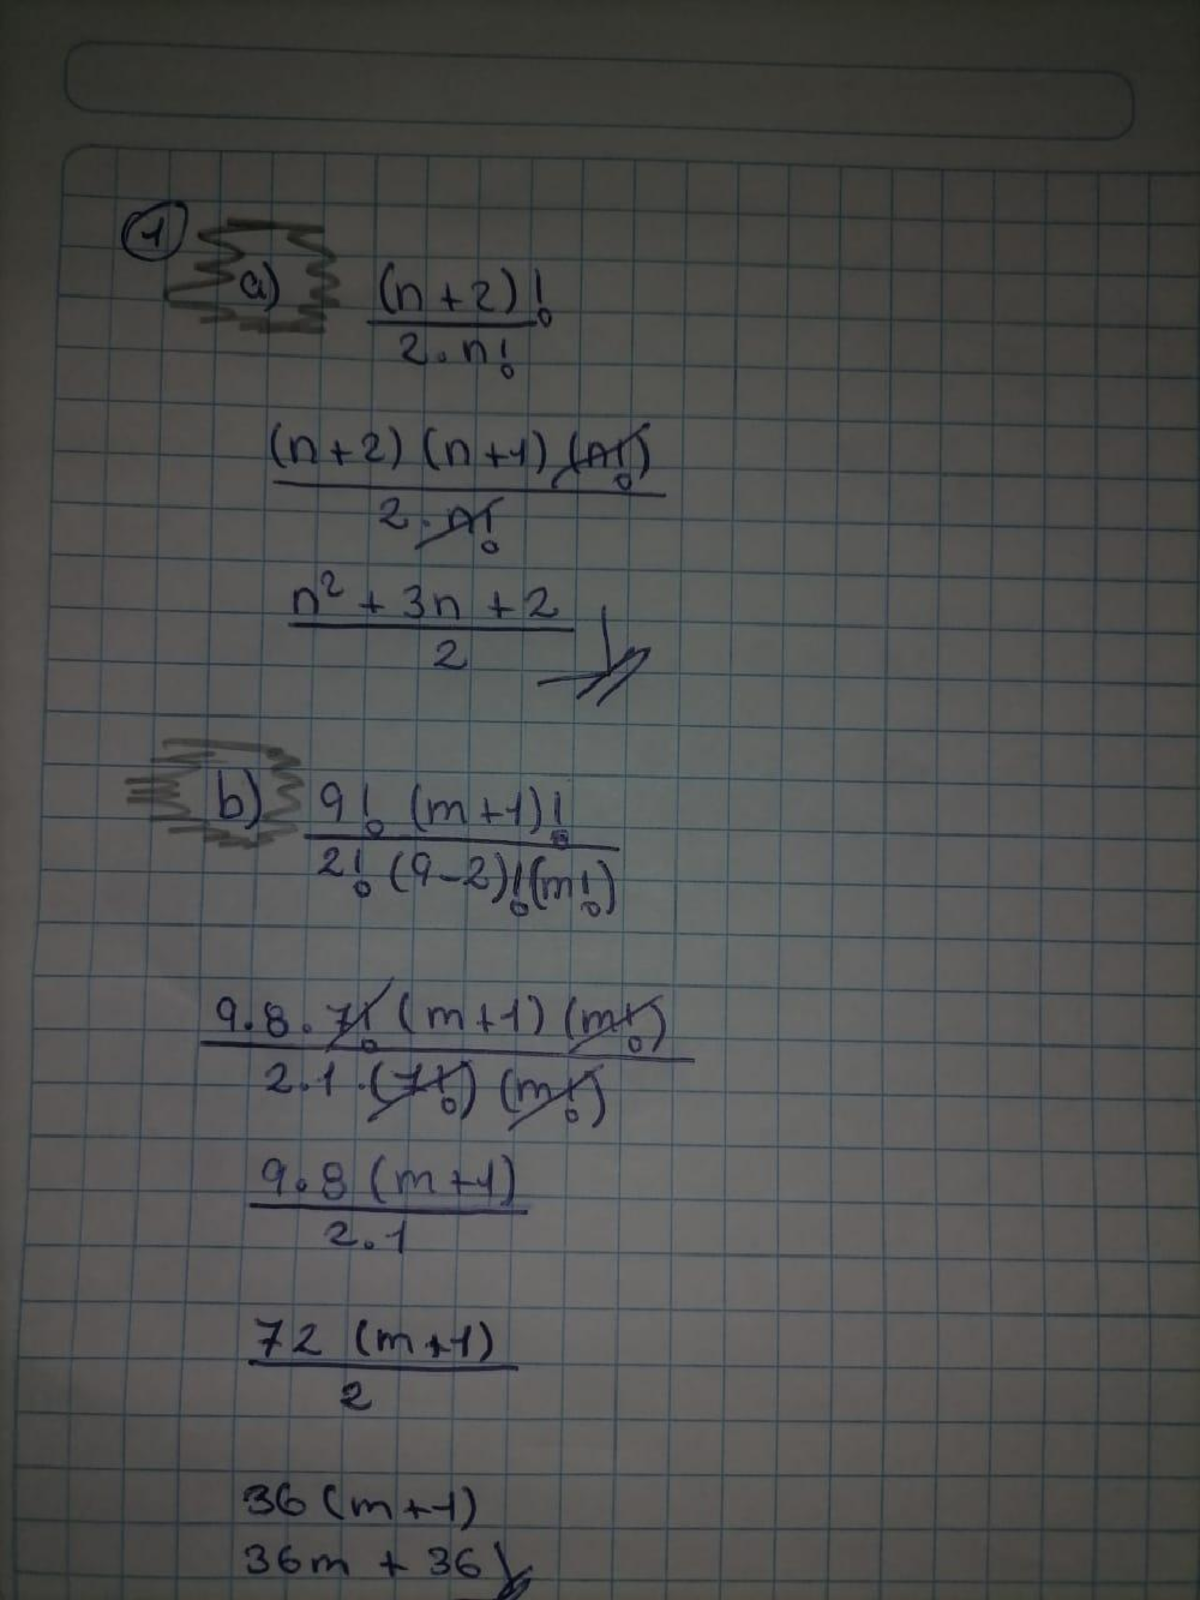 1
a) (n+2)!
2·n!
(n+2)(n+1)(n!)
2·n!
n² + 3n + 2
2
b) 9! (m+1)!
2! (9-2)!(m!)
9.8.7! (m+1)(m!)
2.1.(7!)(m!)
9.8 (m+1)
2.1
72 (m+1)
2
36 (m+1)
36m + 36